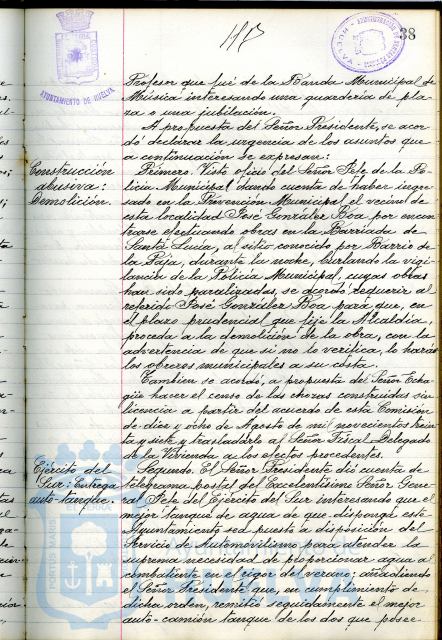 38
AYUNTAMIENTO DE HUELVA
Profesor que fué de la Banda Municipal de
Música interesando una guardería de pla-
za o una jubilación.
A propuesta del Señor Presidente, se acor-
dó declarar la urgencia de los asuntos que
a continuación se expresan:
Construcción
abusiva:
Demolición.
Primero. Visto oficio del Señor Jefe de la Po-
licia Municipal dando cuenta de haber ingre-
sado en la Prevención Municipal el vecino de
esta localidad José González Boa por encon-
trarse efectuando obras en la Barriada de
Santa Lucía, al sitio conocido por Barrio de
la Paja, durante la noche, burlando la vigi-
lancia de la Policia Municipal, cuyas obras
han sido paralizadas, se acordó requerir al
referido José González Boa para que, en
el plazo prudencial que fije la Alcaldía,
proceda a la demolición de la obra, con la
advertencia de que si no lo verifica, lo harán
los obreros municipales a su costa.
Tambien se acordó, a propuesta del Señor Echa-
güe hacer el censo de las chozas construidas sin
licencia a partir del acuerdo de esta Comisión
de diez y ocho de Agosto de mil novecientos trein-
ta y siete y trasladarlo al Señor Fiscal Delegado
de la Vivienda a los efectos procedentes.
Ejército del
Sur: Entrega
auto-tanque
Segundo. El Señor Presidente dió cuenta de
telegrama postal del Excelentísimo Señor Gene-
ral Jefe del Ejército del Sur interesando que el
mejor tanque de agua de que disponga este
Ayuntamiento sea puesto a disposición del
Servicio de Automovilismo para atender la
suprema necesidad de proporcionar agua al
combatiente en el rigor del verano; añadiendo
el Señor Presidente que, en cumplimiento de
dicha orden, remitió seguidamente el mejor
auto-camión tanque de los dos que posee-
PORTUS MARIS
Ayuntamiento de